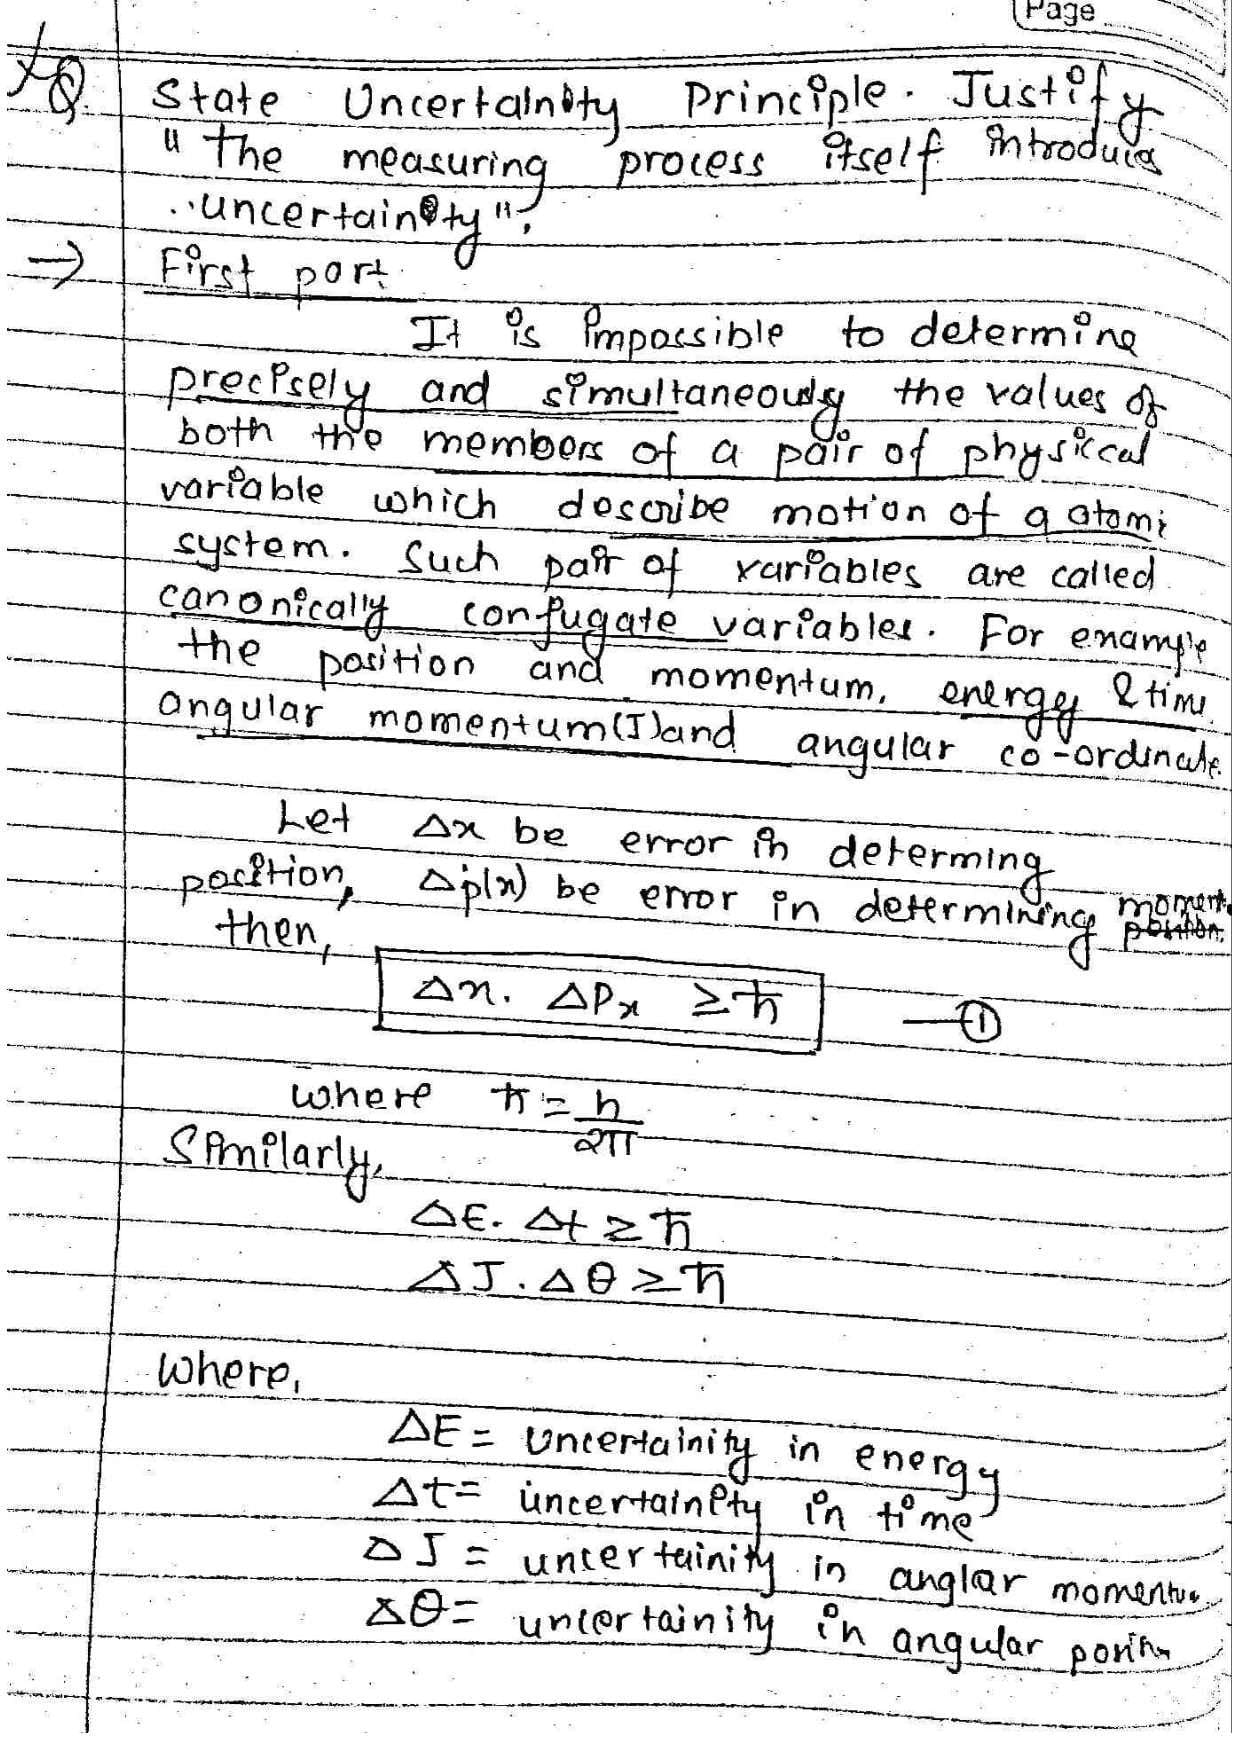 Page
Q. State Uncertainity Principle. Justify
"The measuring process itself introduces
uncertainity".
→ First part
It is impossible to determine
precisely and simultaneously the values of
both the members of a pair of physical
variable which describe motion of a atomi
system. Such pair of variables are called
canonically conjugate variables. For example
the position and momentum, energy & time
angular momentum(J) and angular co-ordinate.
Let Δx be error in determing
position, Δp(x) be error in determining moment.
position.
then,
Δx. ΔPx ≥ ħ —①
where ħ = h/2π
Similarly,
ΔE. Δt ≥ ħ
ΔJ. Δθ ≥ ħ
where,
ΔE = Uncertainity in energy
Δt = uncertainity in time
ΔJ = uncertainity in anglar momentum
Δθ = uncertainity in angular position